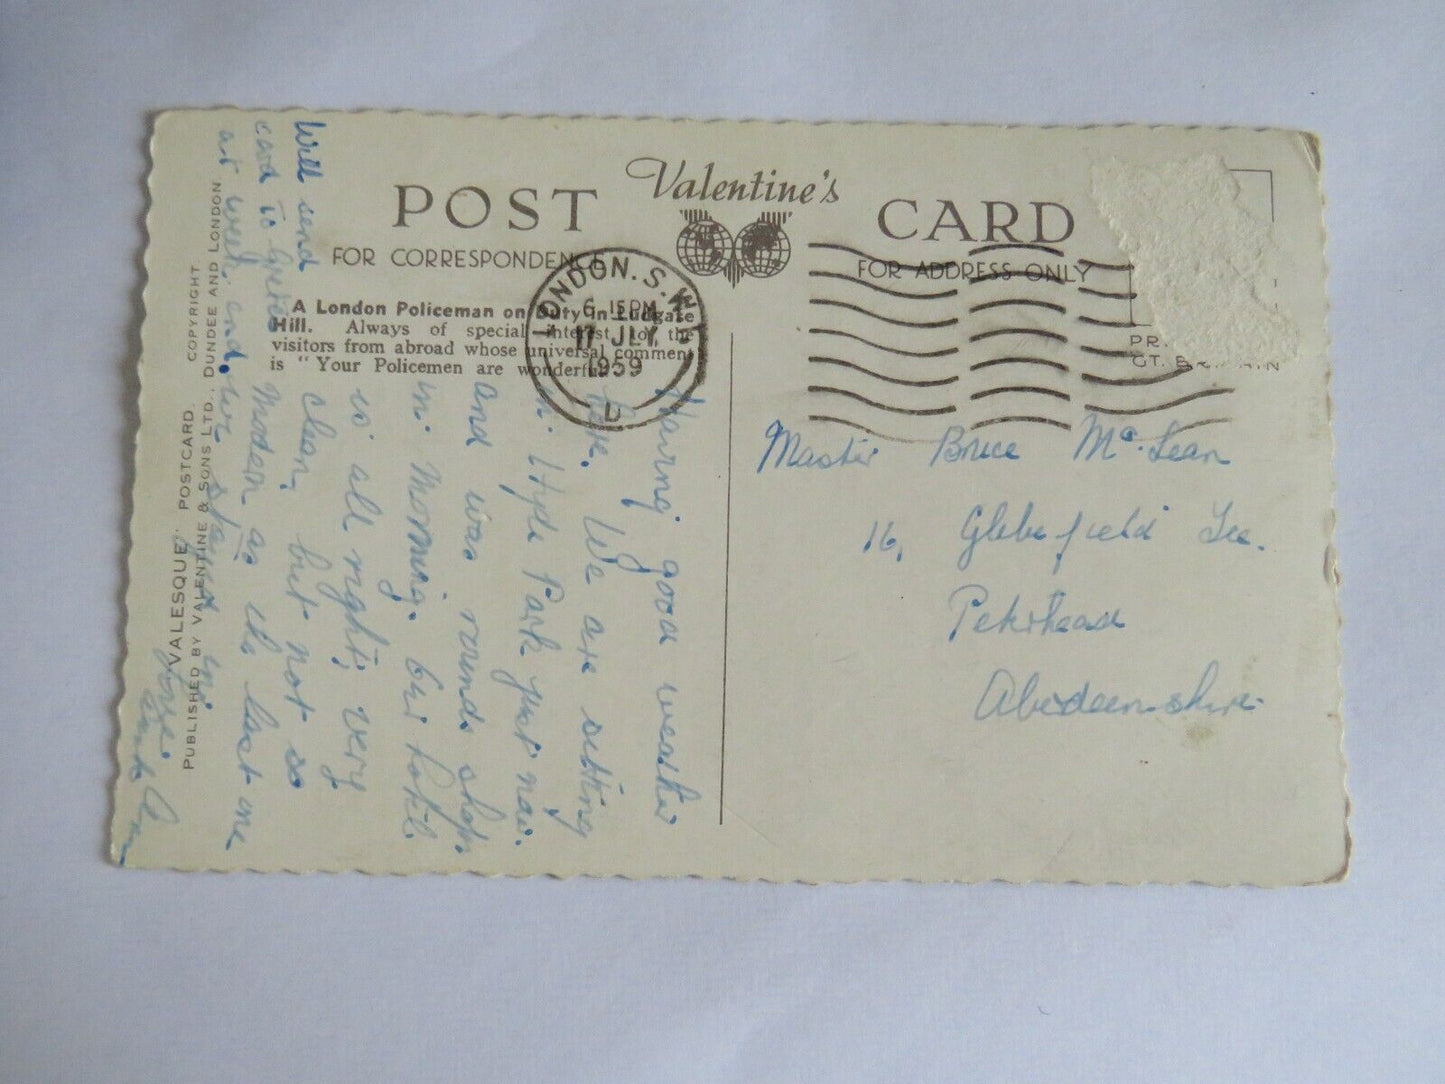 POST Valentine's CARD
FOR CORRESPONDENCE
FOR ADDRESS ONLY
A London Policeman on Duty in Ludgate
Hill. Always of special interest to the
visitors from abroad whose universal comment
is "Your Policemen are wonderful."
LONDON. S.W.1
6.15PM
17 JLY
1959
D
PR
GT. BRITAIN
Master Bruce McLean
16, Glebefield Ter.
Peterhead
Aberdeenshire.
Having good weather
here. We are sitting
in Hyde Park just now.
and was round shops
in Morning. Our hotel
is all right, very
clean, but not so
Modern as the last one
we stayed in.
love
Aunt
Will send
card to
at week end.
"VALESQUE" POSTCARD. COPYRIGHT
PUBLISHED BY VALENTINE & SONS LTD., DUNDEE AND LONDON